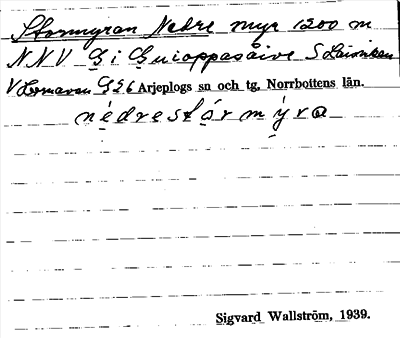 Stormyran Nedre myr 1200 m
NNV G i Guioppasåive S Laisniken
V Lomaven G 26 Arjeplogs sn och tg, Norrbottens län.
nedrestórmýra
Sigvard Wallström, 1939.